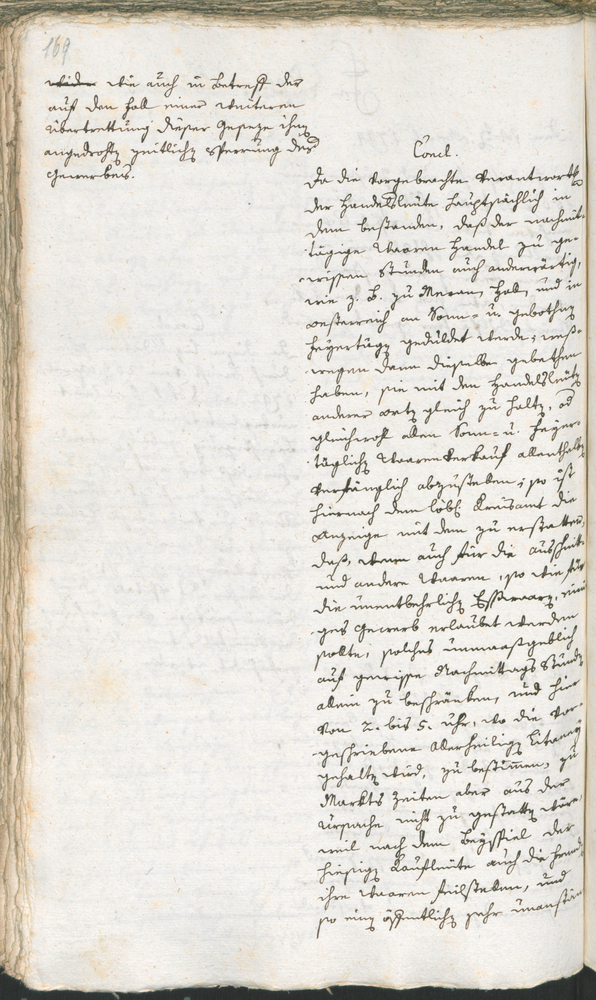 169
wider wie auch in Betreff der
auf den Fall einer weiteren
Übertrettung dieser Geseze ihm
angedrohten zeitlichen Sperrung des
Gewerbes.
Concl.
Da die vorgebrachte Verantwortung
der Handelsleute hauptsächlich in
dem bestanden, daß der nachmit-
tägige Waaren Handel zu ge-
wissen Stunden auch anderwärtig,
wie z. B. zu Meran, Hall, und in
Oesterreich an Sonn- u. gebothenen
Feyertägen geduldet werde; weß-
wegen dann dieselben gebethen
haben, sie mit den Handelsleuten
anderer Orten gleich zu halten, od
gleichwohl allen Sonn- u. Feyer-
täglichen Waaren Verkauf allenthalben
verfänglich abzustellen; so ist
hiernach dem löbl. Kreisamt die
Anzeige mit dem zu erstatten,
daß, wenn auch für die Ausschnitt-
und andere Waaren, so wie für
die unentbehrlichen Esswaaren, eini-
ges Gewerb erlaubet werden
sollte, solches unmaasgeblich
auf gewisse Nachmittags Stunden
allein zu beschränken, und hier
von 2. bis 5. Uhr, wo die vor-
geschriebene Allerheiligen Litaney
gehalten wird, zu bestimmen, zu
Markts Zeiten aber aus der
Ursache nicht zu gestatten wäre,
weil nach dem Beyspiel der
hiesigen Kaufleute auch die Fremden
ihre Waaren feilstellen, und
so einen öffentlichen sehr unanstän-